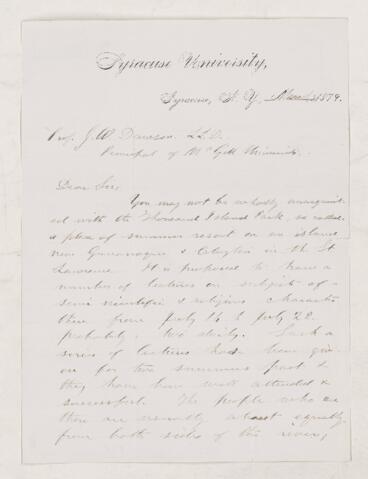 Syracuse University,
Syracuse, N. Y. 1879.
Prof. J. W. Dawson LL.D.
Principal of McGill
Dear Sir,
You may not be wholly unacquaint
ed with the Thousand Island Park, so called
a place of summer resort on an island
near Gananoque & Clayton in the St.
Lawrence. It is proposed to have a
number of lectures on subjects of a
semi scientific & religious character
there from July 16 to July 22
probably. two daily. Such a
series of lectures have been giv-
en for two summers past &
they have been well attended &
successful. The people who are
there are usually about equally
from both sides of the river,